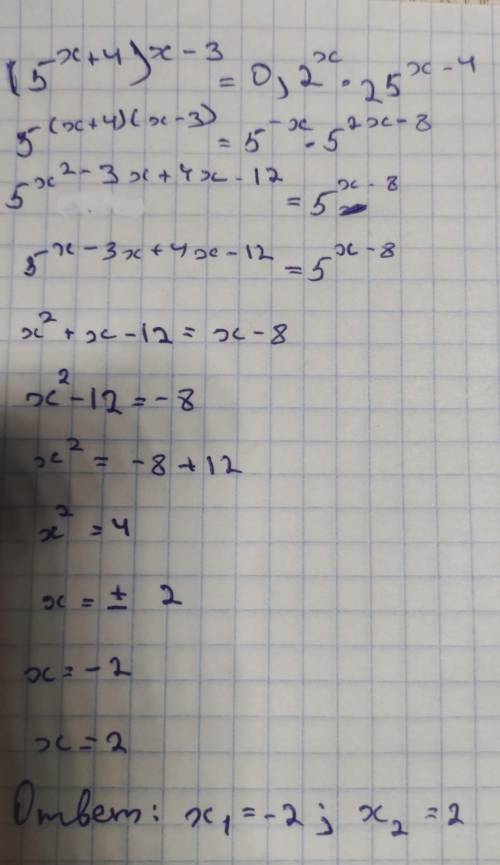 (5^{x+4})^{x-3} = 0,2^x · 25^{x-4}
5^{(x+4)(x-3)} = 5^{-x} · 5^{2x-8}
5^{x^2-3x+4x-12} = 5^{x-8}
5^{x-3x+4x-12} = 5^{x-8}
x^2+x-12 = x-8
x^2-12 = -8
x^2 = -8+12
x^2 = 4
x = ± 2
x = -2
x = 2
Ответ: x_1 = -2; x_2 = 2